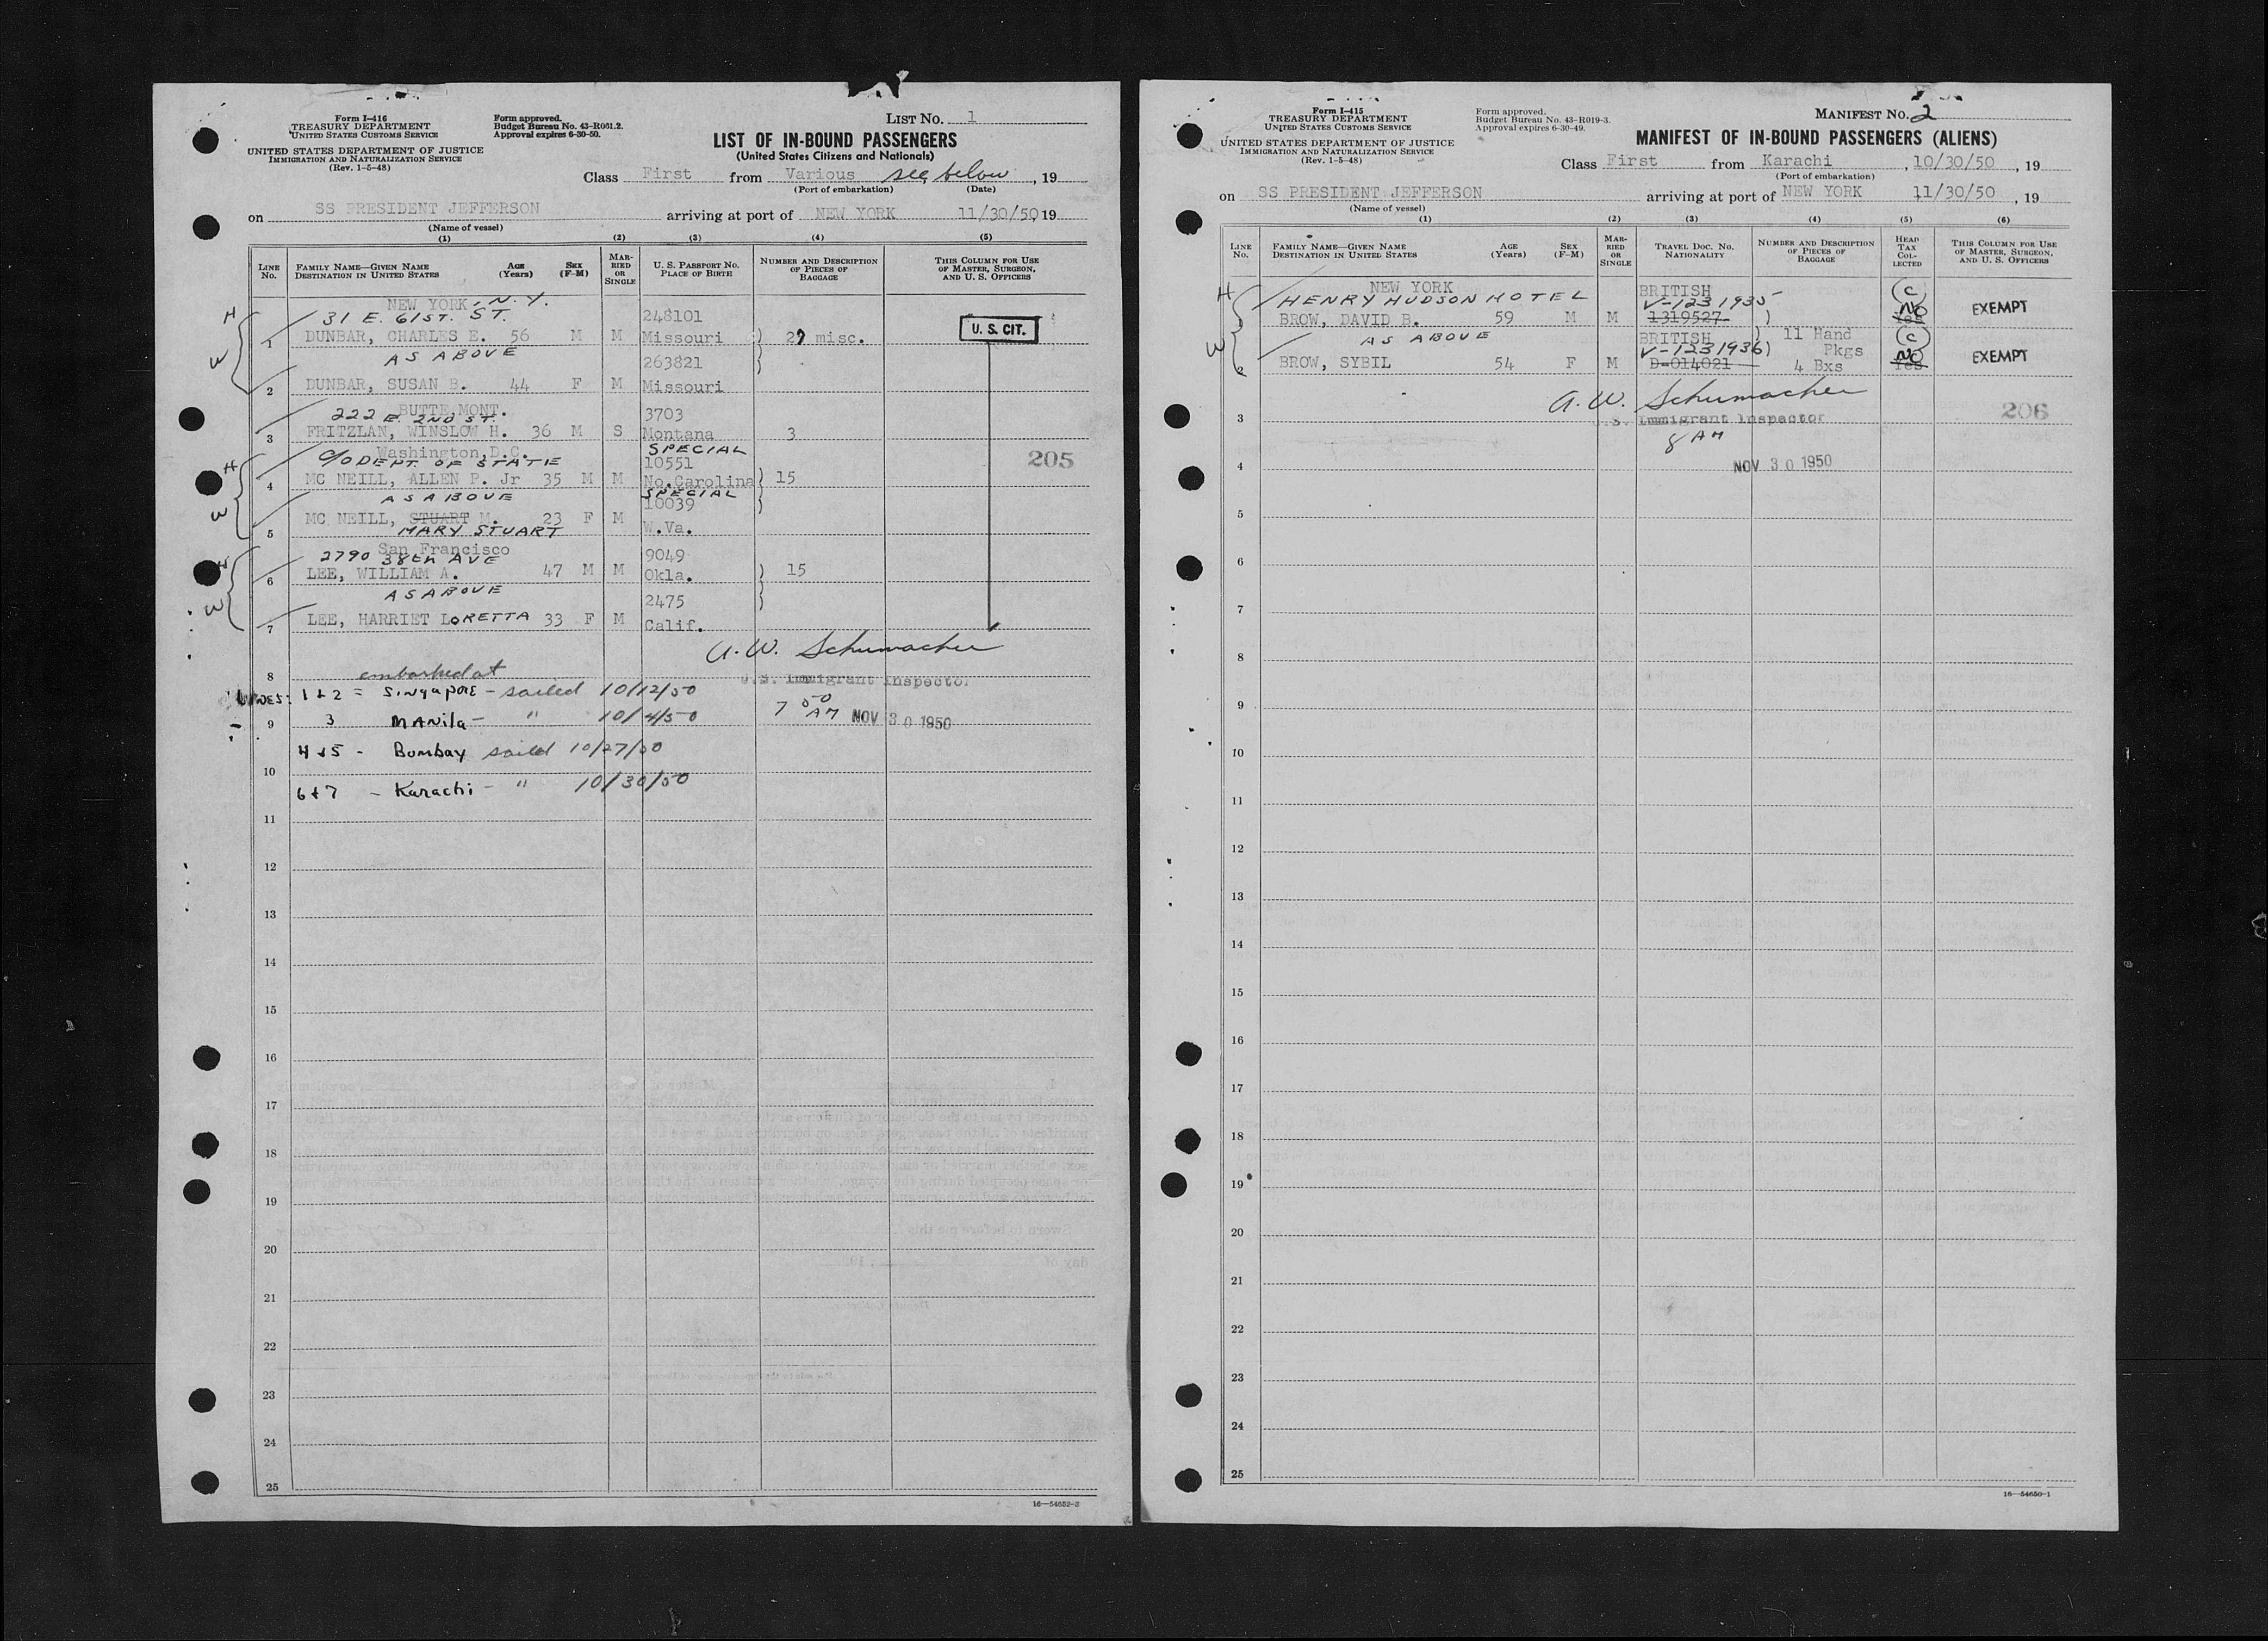 Form I-416
TREASURY DEPARTMENT
UNITED STATES CUSTOMS SERVICE
UNITED STATES DEPARTMENT OF JUSTICE
IMMIGRATION AND NATURALIZATION SERVICE
(Rev. 1-5-48)
Form approved.
Budget Bureau No. 43-R061.2.
Approval expires 6-30-50.
LIST NO. 1
LIST OF IN-BOUND PASSENGERS
(United States Citizens and Nationals)
Class First from Various see below , 19
(Port of embarkation) (Date)
on SS PRESIDENT JEFFERSON arriving at port of NEW YORK 11/30/50, 19
(Name of vessel)
(1) (2) (3) (4) (5)
LINE NO.
FAMILY NAME—GIVEN NAME DESTINATION IN UNITED STATES
AGE (Years)
SEX (F-M)
MARRIED OR SINGLE
U. S. PASSPORT NO. PLACE OF BIRTH
NUMBER AND DESCRIPTION OF PIECES OF BAGGAGE
THIS COLUMN FOR USE OF MASTER, SURGEON, AND U. S. OFFICERS
NEW YORK, N.Y.
31 E. 61ST. ST. 248101
H 1 DUNBAR, CHARLES E. 56 M M Missouri ) 29 misc. U. S. CIT.
AS ABOVE 263821 )
W 2 DUNBAR, SUSAN B. 44 F M Missouri
BUTTE MONT.
222 E. 2ND ST. 3703
3 FRITZLAN, WINSLOW H. 36 M S Montana 3
Washington, D.C. SPECIAL
C/O DEPT. OF STATE 10551 205
H 4 MC NEILL, ALLEN P. Jr 35 M M No.Carolina ) 15
AS ABOVE SPECIAL
10039 )
W 5 MC NEILL, STUART M. 23 F M W.Va.
MARY STUART
San Francisco
2790 38th AVE 9049
H 6 LEE, WILLIAM A. 47 M M Okla. ) 15
AS ABOVE 2475 )
W 7 LEE, HARRIET LORETTA 33 F M Calif.
A. W. Schumacher
U.S. Immigrant Inspector
7 50 AM NOV 30 1950
8 embarked at
LINES: 1 & 2 = Singapore - sailed 10/12/50
9 3 Manila - " 10/4/50
4 & 5 - Bombay sailed 10/27/50
10
6 & 7 - Karachi - " 10/30/50
11
12
13
14
15
16
17
18
19
20
21
22
23
24
25
16—54652-3
Form I-415
TREASURY DEPARTMENT
UNITED STATES CUSTOMS SERVICE
UNITED STATES DEPARTMENT OF JUSTICE
IMMIGRATION AND NATURALIZATION SERVICE
(Rev. 1-5-48)
Form approved.
Budget Bureau No. 43-R019-3.
Approval expires 6-30-49.
MANIFEST NO. 2
MANIFEST OF IN-BOUND PASSENGERS (ALIENS)
Class First from Karachi , 10/30/50 , 19
(Port of embarkation)
on SS PRESIDENT JEFFERSON arriving at port of NEW YORK 11/30/50 , 19
(Name of vessel)
(1) (2) (3) (4) (5) (6)
LINE NO.
FAMILY NAME—GIVEN NAME DESTINATION IN UNITED STATES
AGE (Years)
SEX (F-M)
MARRIED OR SINGLE
TRAVEL DOC. NO. NATIONALITY
NUMBER AND DESCRIPTION OF PIECES OF BAGGAGE
HEAD TAX COLLECTED
THIS COLUMN FOR USE OF MASTER, SURGEON, AND U. S. OFFICERS
NEW YORK BRITISH C
HENRY HUDSON HOTEL V-1231935 NO EXEMPT
H 1 BROW, DAVID B. 59 M M 1319527 ) Yes
AS ABOVE BRITISH ) 11 Hand C
V-1231936 ) Pkgs NO EXEMPT
W 2 BROW, SYBIL 54 F M D-014021 4 Bxs Yes
A. W. Schumacher
3 U.S. Immigrant Inspector 206
8 AM
4 NOV 30 1950
5
6
7
8
9
10
11
12
13
14
15
16
17
18
19
20
21
22
23
24
25
16—54650-1